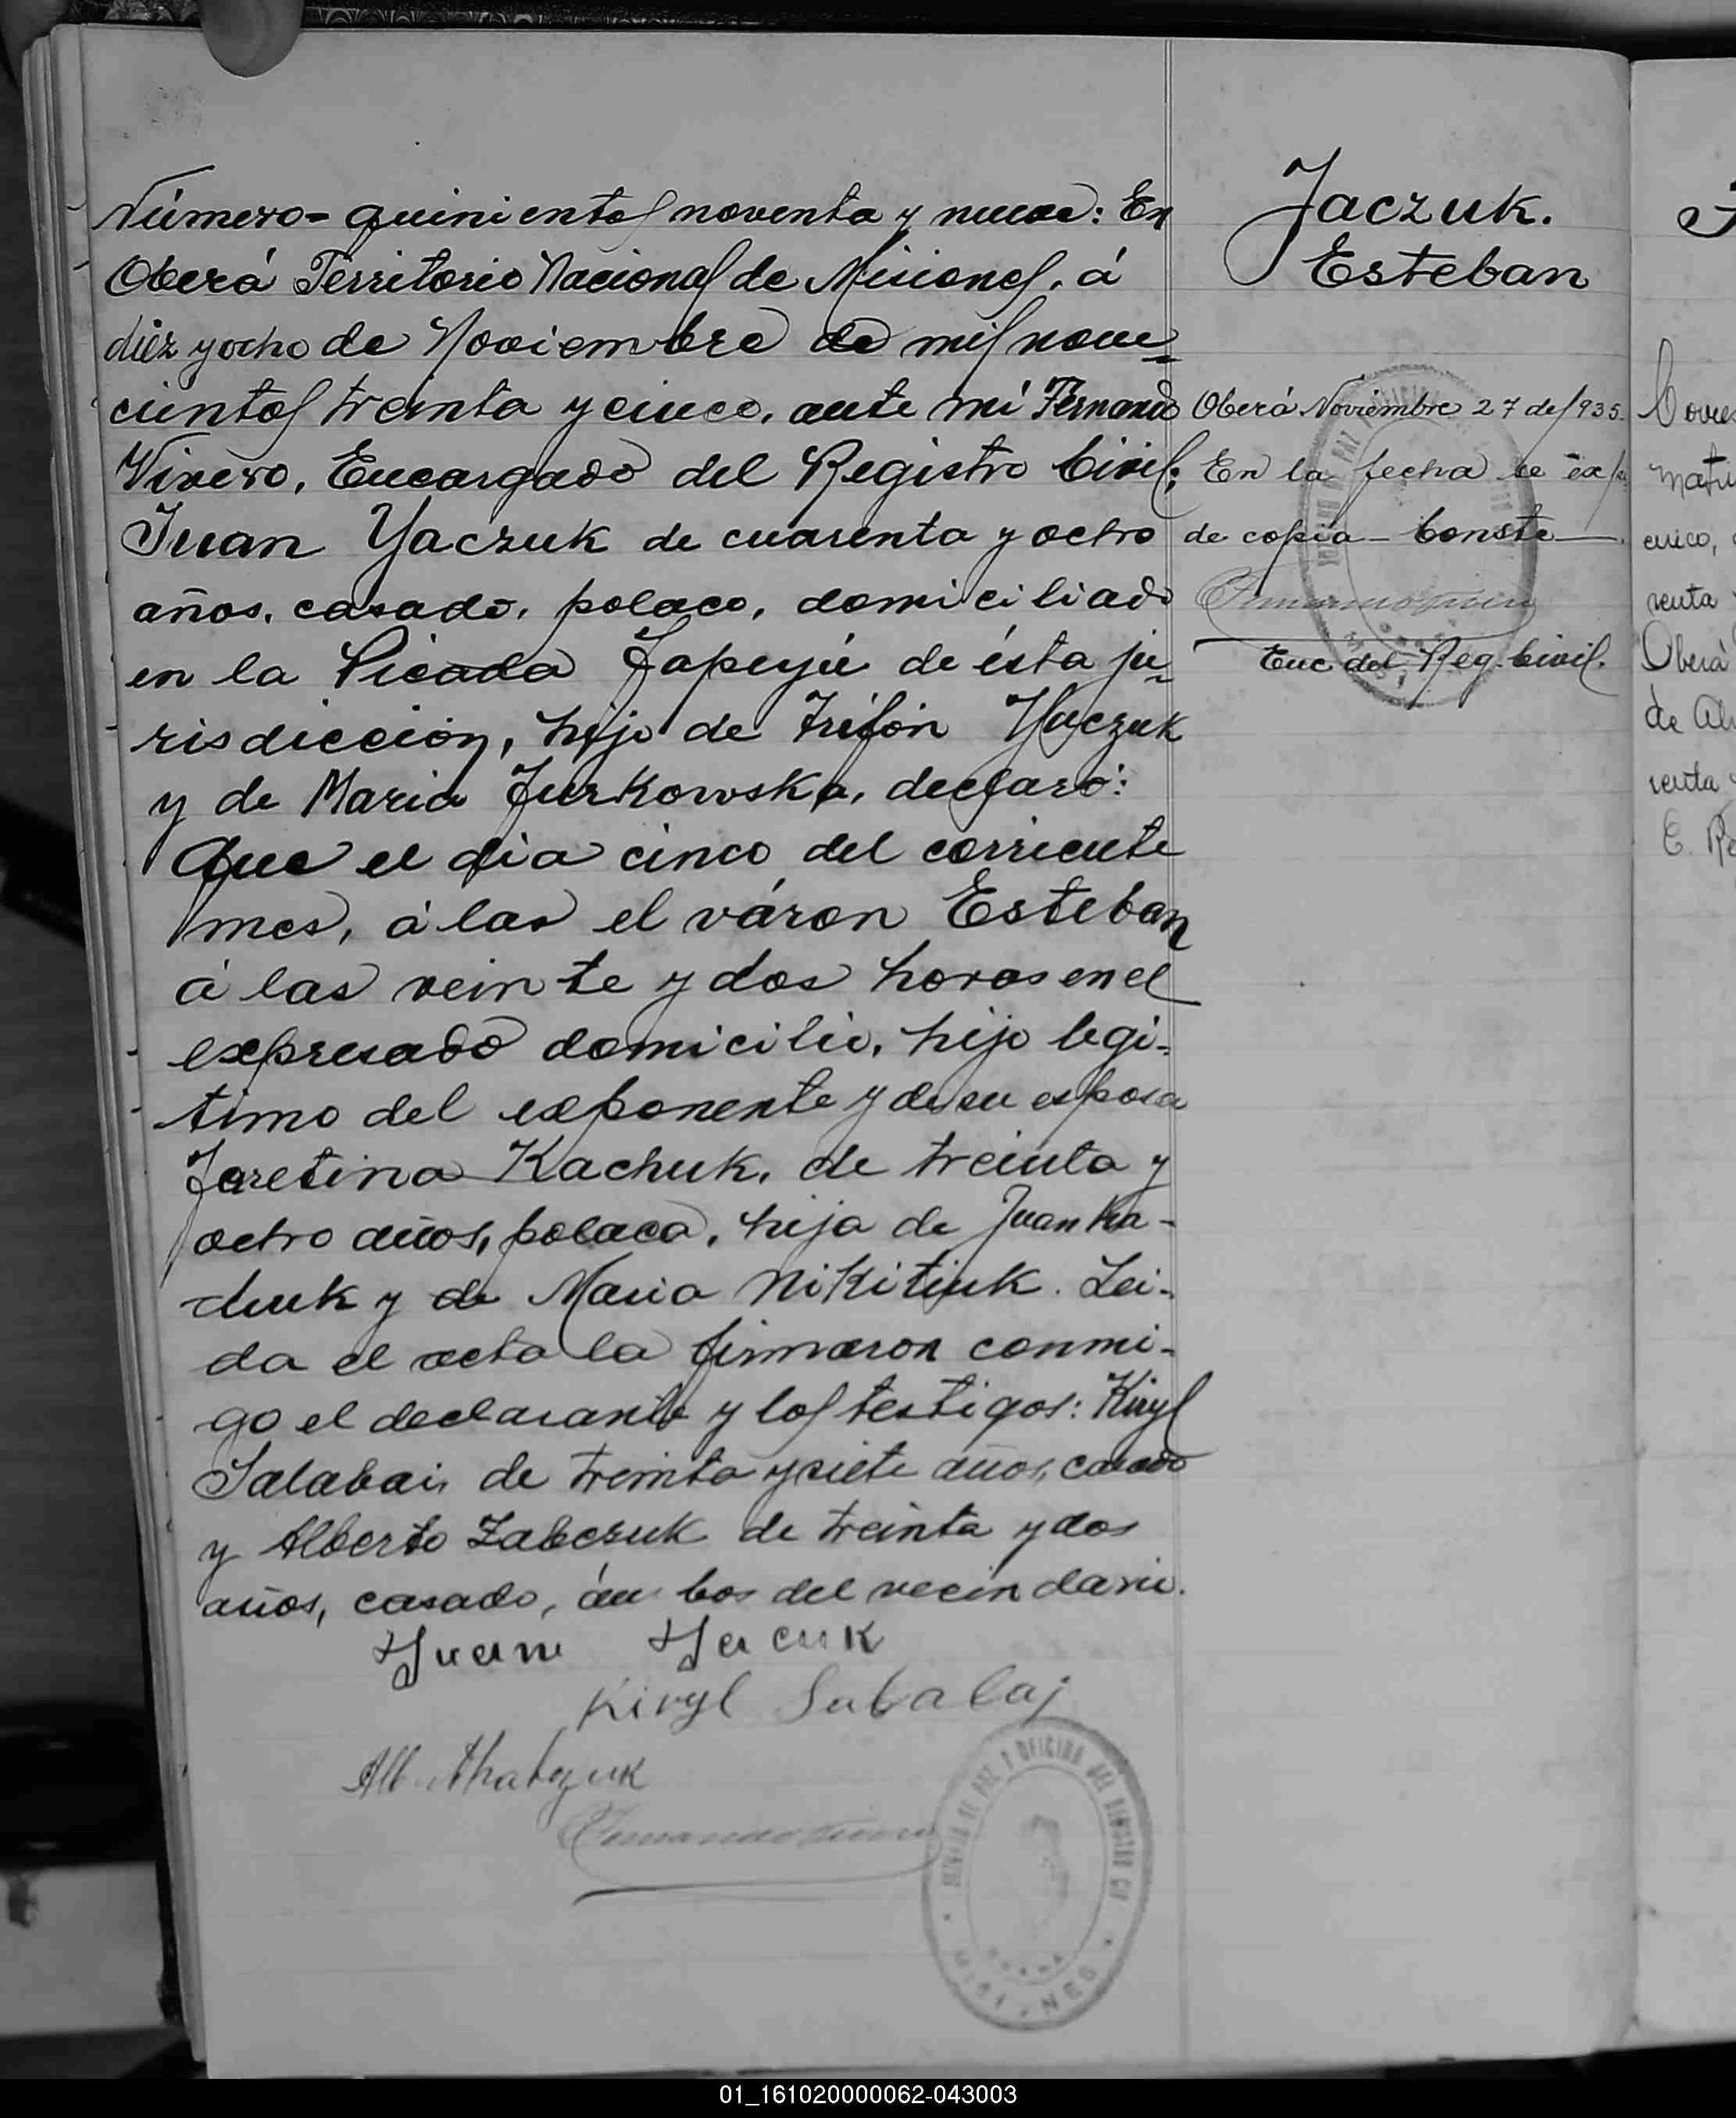 Número = quinientos noventa y nueve: En
Oberá Territorio Nacional de Misiones, á
diez y ocho de Noviembre de mil nove=
cientos treinta y cinco, ante mí Fernando
Vivero, Encargado del Registro Civil;
Juan Yaczuk de cuarenta y ocho
años, casado, polaco, domiciliado
en la Picada Japeyú de ésta ju=
risdiccion, hijo de Trifón Yaczuk
y de Maria Jurkowska, declaró:
Que el dia cinco del corriente
mes, á las el váron Esteban
á las veinte y dos horas en el
expresado domicilio, hijo legi=
timo del exponente y de su esposa
Jaretina Kachuk, de treinta y
ocho años, polaca, hija de Juan Ka-
chuk y de Maria Nikitiuk. Lei-
da el acta la firmaron conmi-
go el declarante y los testigos: Kiryl
Salabai, de treinta y siete años, casado
y Alberto Zabczuk de treinta y dos
años, casado, ámbos del vecindario.
Juan Jacuk
Kiryl Sabalaj
Fernando Vivero
Jaczuk.
Esteban
Oberá Noviembre 27 de/935.
En la fecha se expi
de copia - Conste
Fernando Vivero
Enc. del Reg. Civil.
MISIONES
01_161020000062-043003